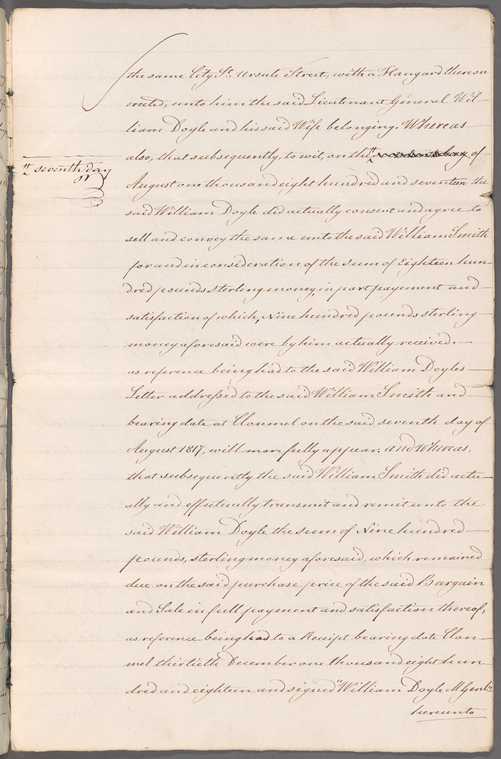 the same City St. Ursule Street, with a Hangard thereon
erected, unto him the said Lieutenant General Wil-
liam Doyle and his said Wife belonging. Whereas
also, that subsequently, to wit, on the th of
th seventh day
August one thousand eight hundred and seventeen the
said William Doyle did actually consent and agree to
sell and convey the same unto the said William Smith
for and in consideration of the sum of Eighteen hun-
dred pounds sterling money, in part payment and
satisfaction of which, Nine hundred pounds sterling
money aforesaid were by him actually received.
as reference being had to the said William Doyles
Letter addressed to the said William Smith and
bearing date at Clonmel on the said seventh day of
August 1817, will more fully appear, and whereas,
that subsequently the said William Smith did actu-
ally and effectually transmit and remit unto the
said William Doyle the sum of Nine hundred
pounds, sterling money aforesaid, which remained
due on the said purchase price of the said Bargain
and Sale in full payment and satisfaction thereof,
as reference being had to a Receipt bearing date Clon-
mel thirtieth December one thousand eight hun
dred and eighteen and signed "William Doyle M Genl"
hereunto